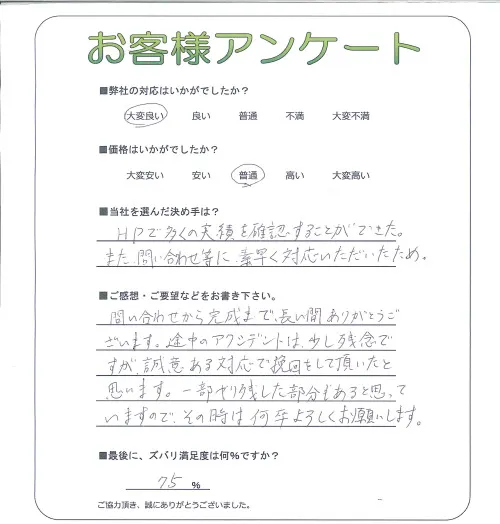 お客様アンケート
■弊社の対応はいかがでしたか？
大変良い 良い 普通 不満 大変不満
■価格はいかがでしたか？
大変安い 安い 普通 高い 大変高い
■当社を選んだ決め手は？
HPで多くの実績を確認することができた。
また、問い合わせ等に、素早く対応いただいたため。
■ご感想・ご要望などをお書き下さい。
問い合わせから完成まで、長い間ありがとうご
ざいます。途中のアクシデントは、少し残念で
すが、誠意ある対応で挽回をして頂いたと
思います。一部やり残した部分もあると思って
いますので、その時は何卒よろしくお願いします。
■最後に、ズバリ満足度は何％ですか？
75 %
ご協力頂き、誠にありがとうございました。